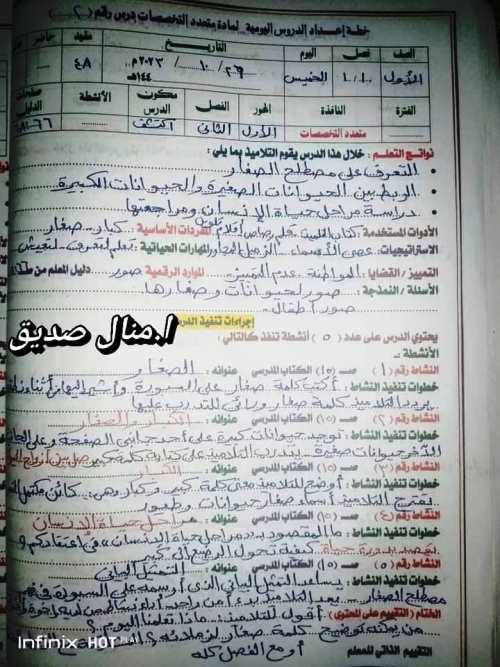 خطة إعداد الدروس اليومية لمادة متعدد التخصصات درس رقم (٢)
الصف فصل اليوم التاريخ مقيد حاضر
الأول ١/١ الخميس ٢٦ / ١٠ / ٢٠٢٣م ٤٨
/ / ١٤٤هـ
الفترة النافذة المحور الفصل مكون الدرس الأنشطة صفحات الدليل
متعدد التخصصات الأول الثانى اكتشف
نواتج التعلم : خلال هذا الدرس يقوم التلاميذ بما يلى :
• التعرف على مصطلح الصغار
• الربط بين الحيوانات الصغيرة والحيوانات الكبيرة
• دراسة مراحل حياة الإنسان ومراجعتها
الأدوات المستخدمة : كتاب التلميذ قلم رصاص أقلام تلوين المفردات الأساسية : كبار - صغار
الاستراتيجيات : عصى الأسماء - الزميل المجاور المهارات الحياتية : تعلم لتعرف - لتعيش
التميز / القضايا : المواطنة عدم التمييز الموارد الرقمية صور دليل المعلم من
الأسئلة / النمذجة : صور لحيوانات وصغارها
صور أطفال
إجراءات تنفيذ الدرس
ا.منال صديق
يحتوي الدرس على عدد ( ٥ ) أنشطة تنفذ كالتالي :
الأنشطة :-
النشاط رقم (١) صـ (١٥) الكتاب المدرسي عنوانه : الصغار
خطوات تنفيذ النشاط : أكتب كلمة صغار على السبورة وأشير إليها
التلاميذ كلمة صغار للتدرب عليها
النشاط رقم (٢) صـ (١٥) الكتاب المدرسي عنوانه : الكبار والصغار
خطوات تنفيذ النشاط : توجد حيوانات كبيرة على أحد جانبى الصفحة وعلى الجانب
الآخر حيوانات صغيرة - يتدرب التلاميذ على كتابة كلمة كبير
النشاط رقم (٣) صـ (١٥) الكتاب المدرسي عنوانه : الكبار
خطوات تنفيذ النشاط : أوضح للتلاميذ معنى كلمة كبير وكبار وهى : كائن مكتمل
يقترح التلاميذ أسماء صغار حيوانات وطيور
النشاط رقم (٤) صـ (١٥) الكتاب المدرسي عنوانه : مراحل حياة الإنسان
خطوات تنفيذ النشاط : ما المقصود بـ مراحل حياة الإنسان فى اعتقادكم ؟
حياة كيفية تحول الرضيع إلى كبير
النشاط رقم (٥) صـ (١٥) الكتاب المدرسي عنوانه : التمثيل البيانى
خطوات تنفيذ النشاط : يساعد التمثيل البيانى الذى أرسمه على السبورة فى فهم
مصطلح الصغار - يعد التلاميذ بدءًا من واحد
الختام (التقييم على المحتوى) أقول للتلاميذ : ماذا تعلمنا اليوم ؟
من يمكنه توضيح كلمة صغار لزملائه ؟
التقييم الذاتي للمعلم أومع الفصل كله
Infinix HOT